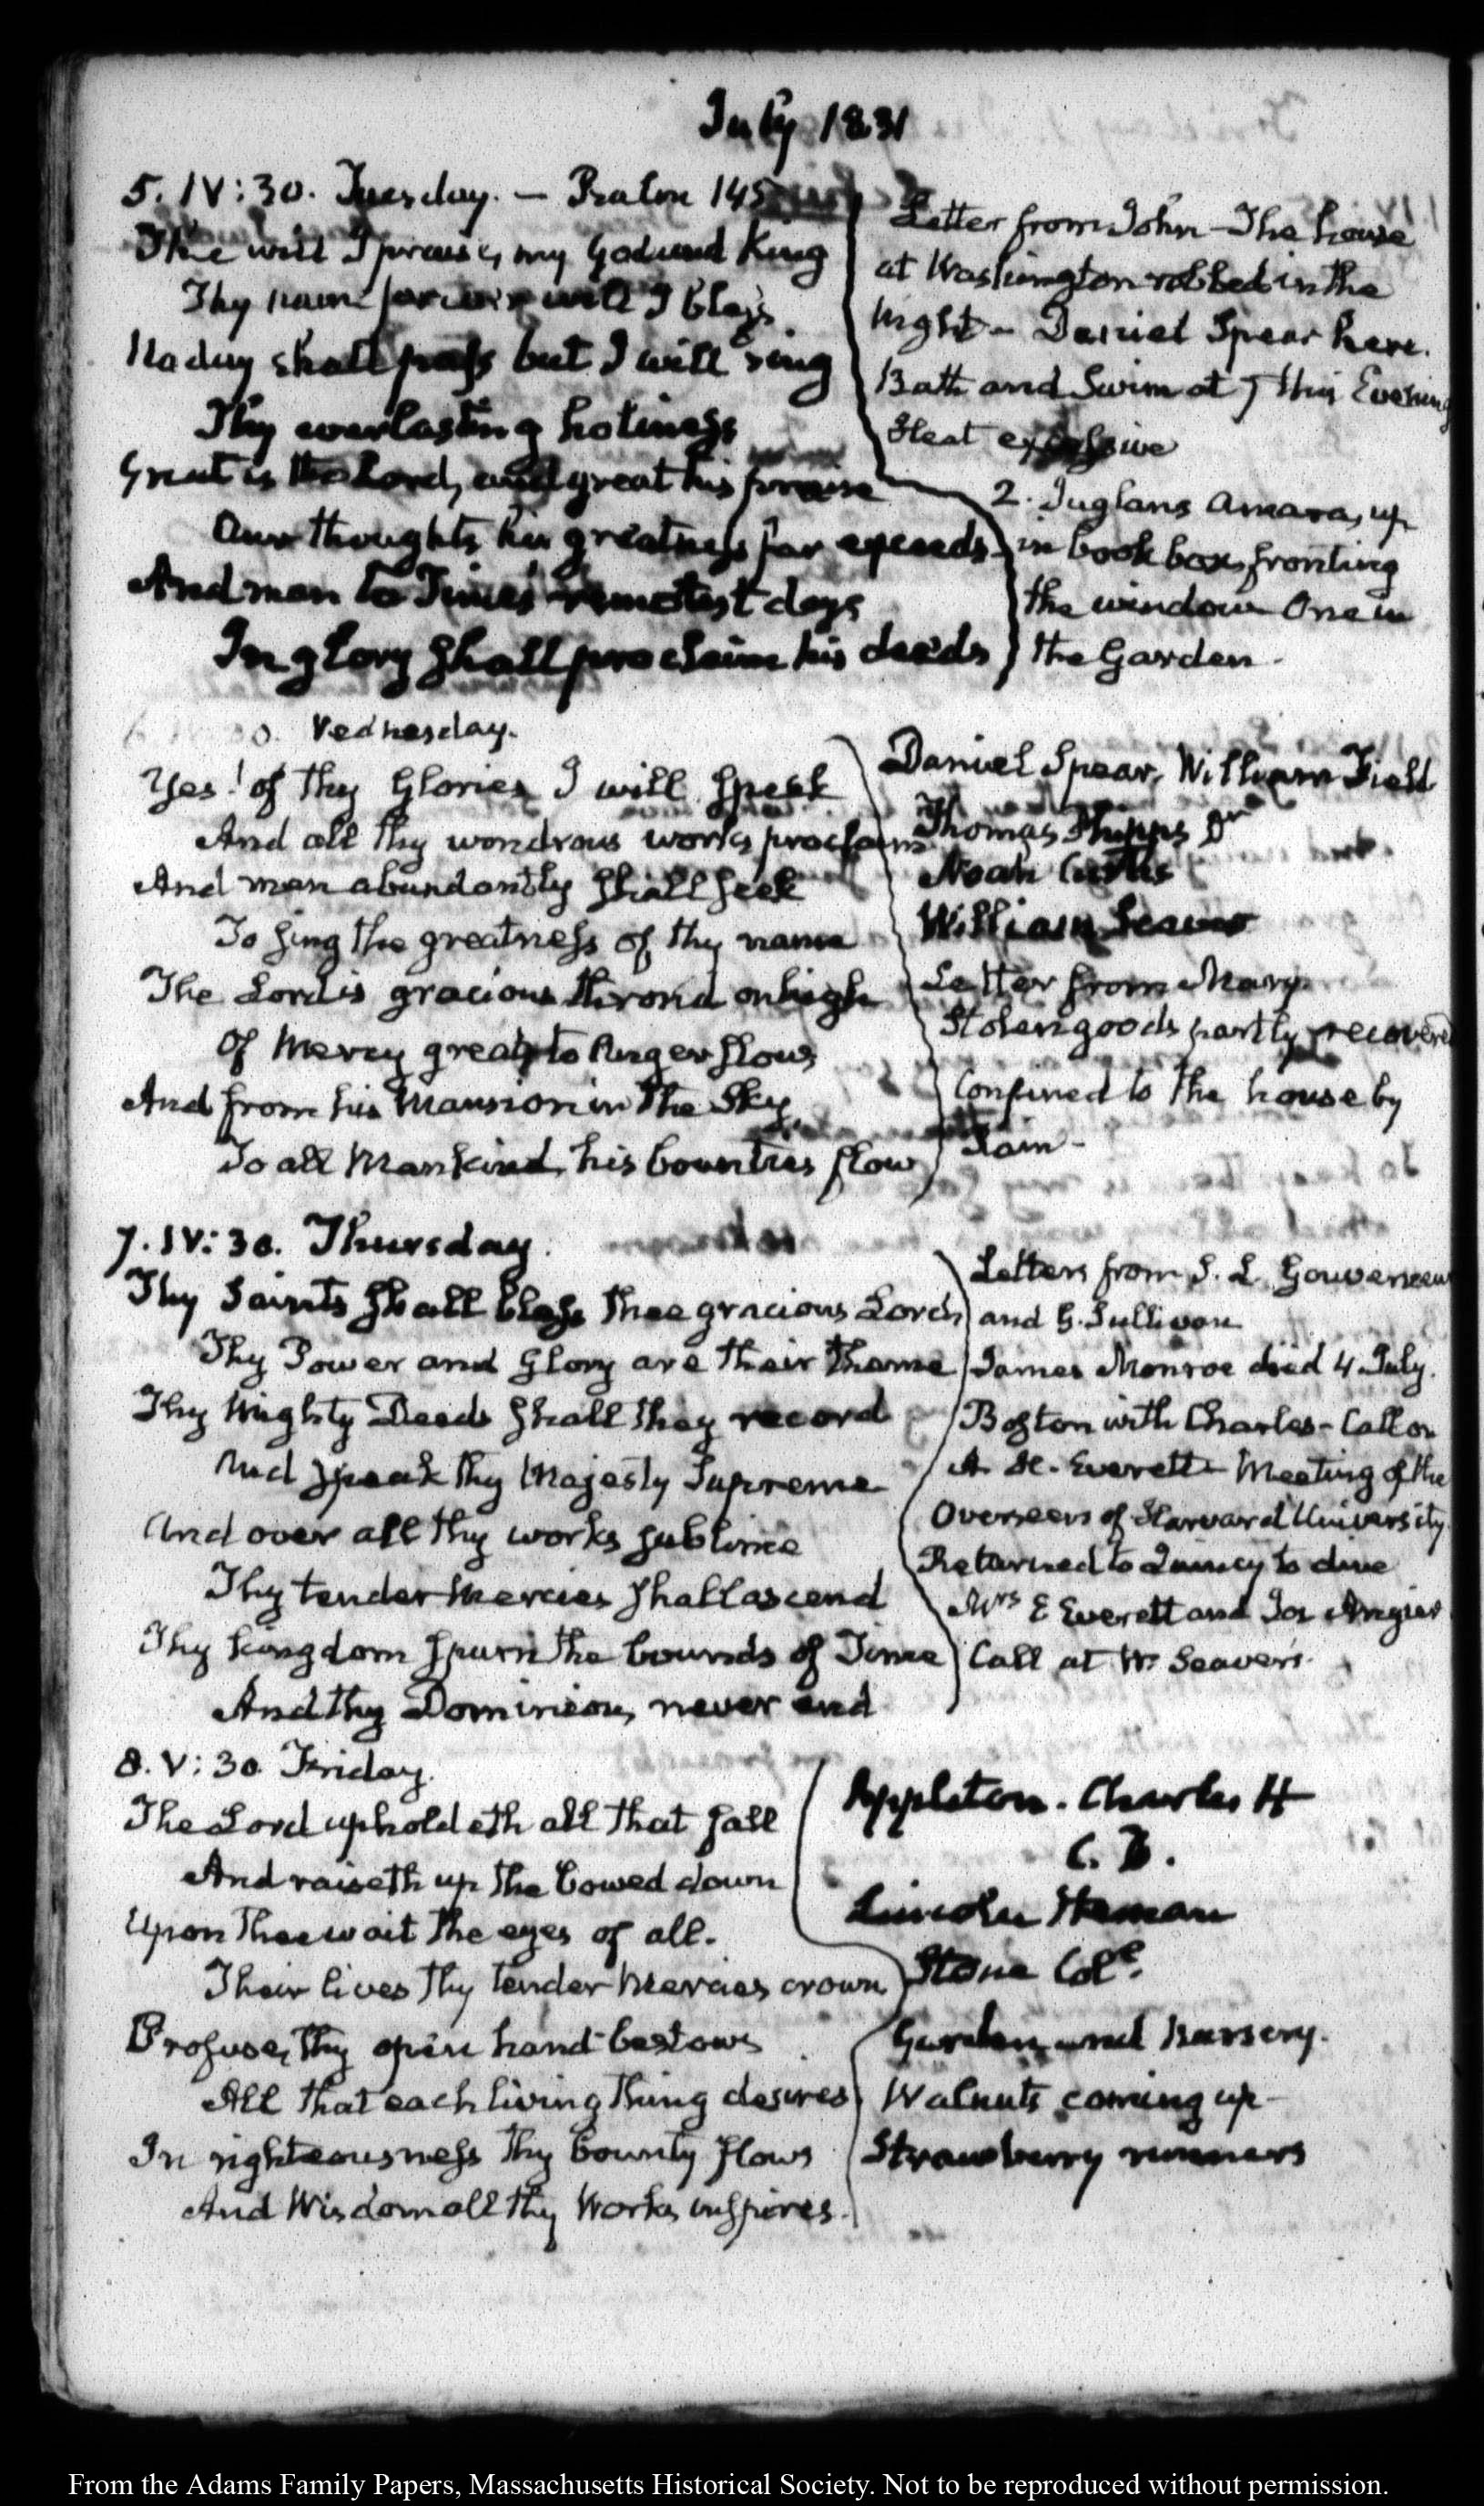 July 1831
5. IV:30. Tuesday. — Psalm 145
Thee will I praise, my God and King
Thy name forever will I bless
No day shall pass but I will sing
Thy everlasting holiness
Great is the Lord, and great his praise
Our thoughts his greatness far exceeds
And men to Time's remotest days
In glory shall proclaim his deeds
Letter from John – The house
at Washington robbed in the
night – Daniel Spear here.
Bath and Swim at 7 this Evening
Heat excessive
2. Juglans Amara, up
in book box, fronting
the window One in
the Garden.
6. 30. Wednesday.
Yes! of thy Glories I will speak
And all thy wondrous works proclaim
And men abundantly shall seek
To sing the greatness of thy name
The Lord is gracious throned on high
Of Mercy great, to Anger slow
And from his Mansion in the Sky
To all Mankind, his bounties flow
Daniel Spear, William Field
Thomas Phipps Dn
Noah Curtis
William Seaver
Letter from Mary
Stolen goods partly recovered
Confined to the house by
Rain –
7. IV:30. Thursday.
Thy Saints shall bless thee gracious Lord
Thy Power and Glory are their theme
Thy Mighty Deeds shall they record
And speak thy Majesty Supreme
And over all thy works sublime
Thy tender Mercies shall ascend
Thy kingdom spurn the bounds of Time
And thy Dominion, never end
Letters from S. L. Gouverneur
and G. Sullivan
James Monroe died 4 July.
Boston with Charles – Call on
A. H. Everett – Meeting of the
Overseers of Harvard University
Returned to Quincy to dine
Mrs E Everett and Jos Angier
Call at W. Seaver's.
8. V:30. Friday.
The Lord upholdeth all that fall
And raiseth up the bowed down
Upon Thee wait the eyes of all.
Their lives thy tender Mercies crown
Profuse, thy open hand bestows
All that each living thing desires
In righteousness thy bounty flows
And Wisdom all thy Works inspires.
Appleton. Charles H
C. B.
Lincoln Heman
Stone Col.
Garden and Nursery.
Walnuts coming up –
Strawberry runners
From the Adams Family Papers, Massachusetts Historical Society. Not to be reproduced without permission.